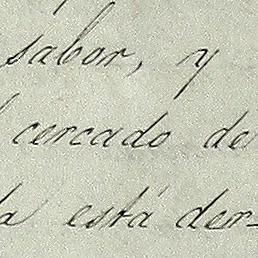 sabor, y
cercado de
está der-